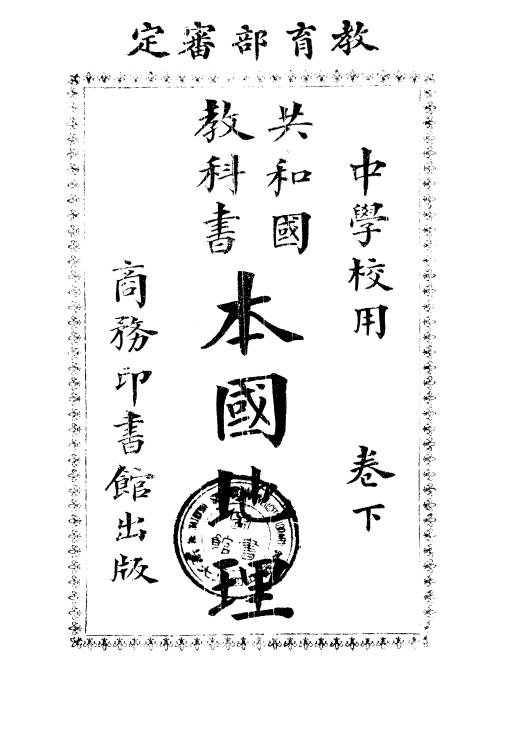 教育部審定
中學校用 卷下
共和國
教科書
本國地理
商務印書館出版